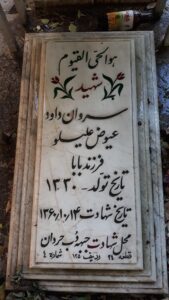 هو الحی القیوم
شهید
سروان داود
عیوض علیلو
فرزند بابا
تاریخ تولد - ۱۳۳۰
تاریخ شهادت ۱۳۶۰/۱۰/۱۴
محل شهادت جبهه غرب
ردیف ۱۲۵ شماره ۴